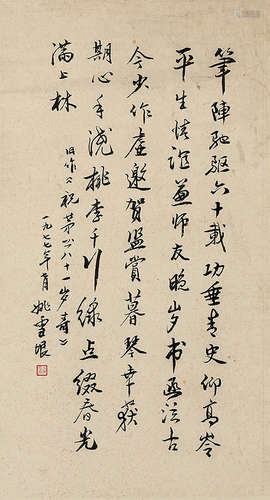 筆陣馳驅六十載功垂青史仰高岑
平生情誼兼師友晚岁书函泛古
今少作虚邀賀監賞暮琴幸获
期心手浇桃李千行绿点缀春光
满上林
旧作《祝茅公八十一岁寿》
一九七七年 月 姚雪垠